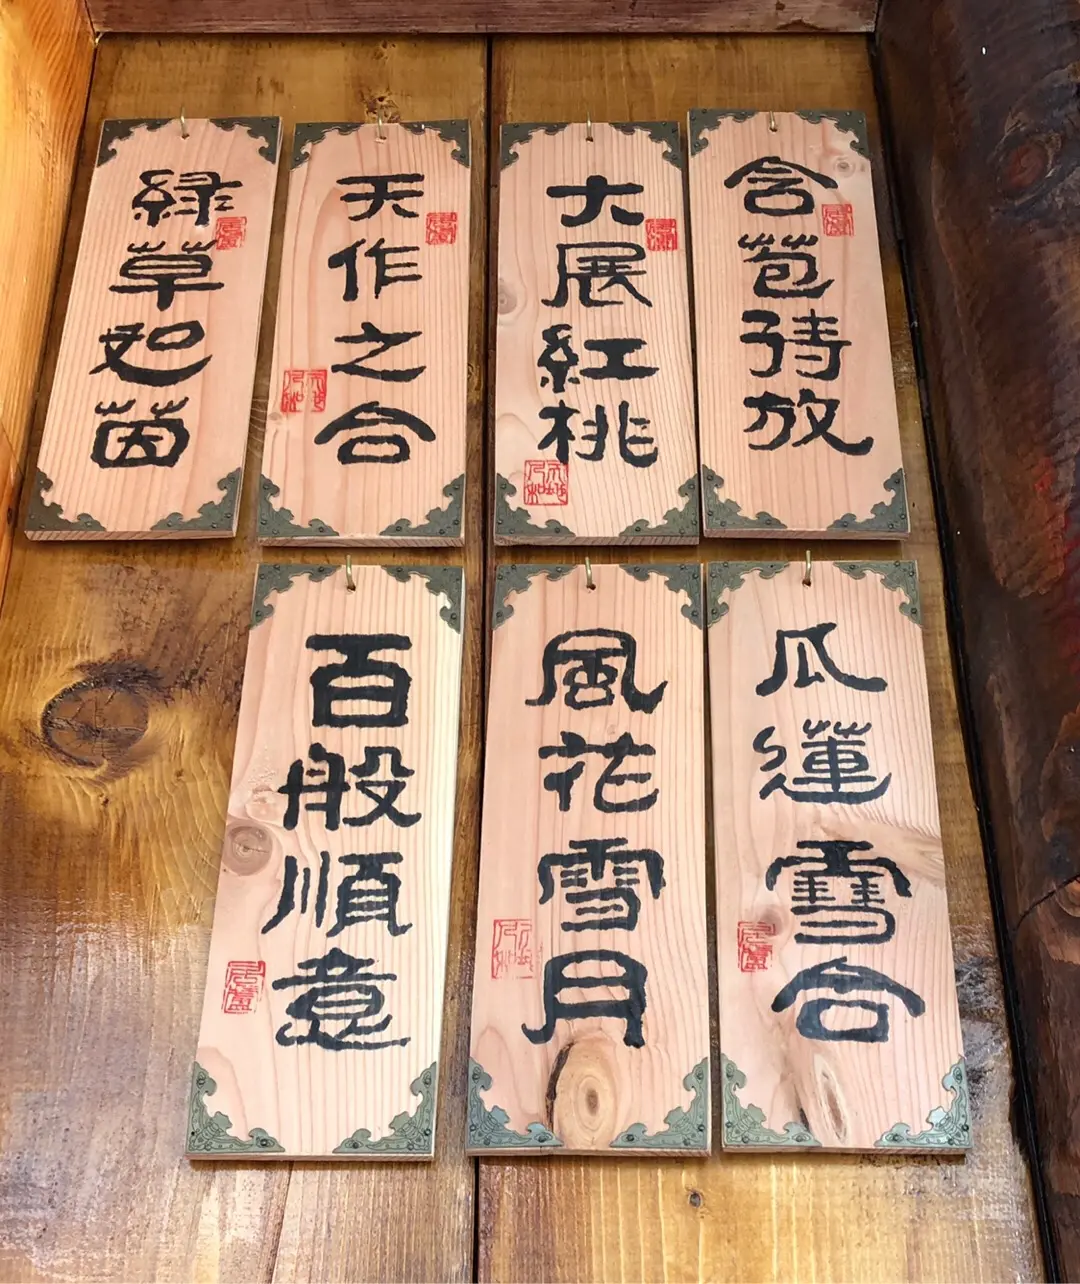 含苞待放
大展紅桃
天作之合
緑草恕茵
瓜蓮雪合
風花雪月
百般順意